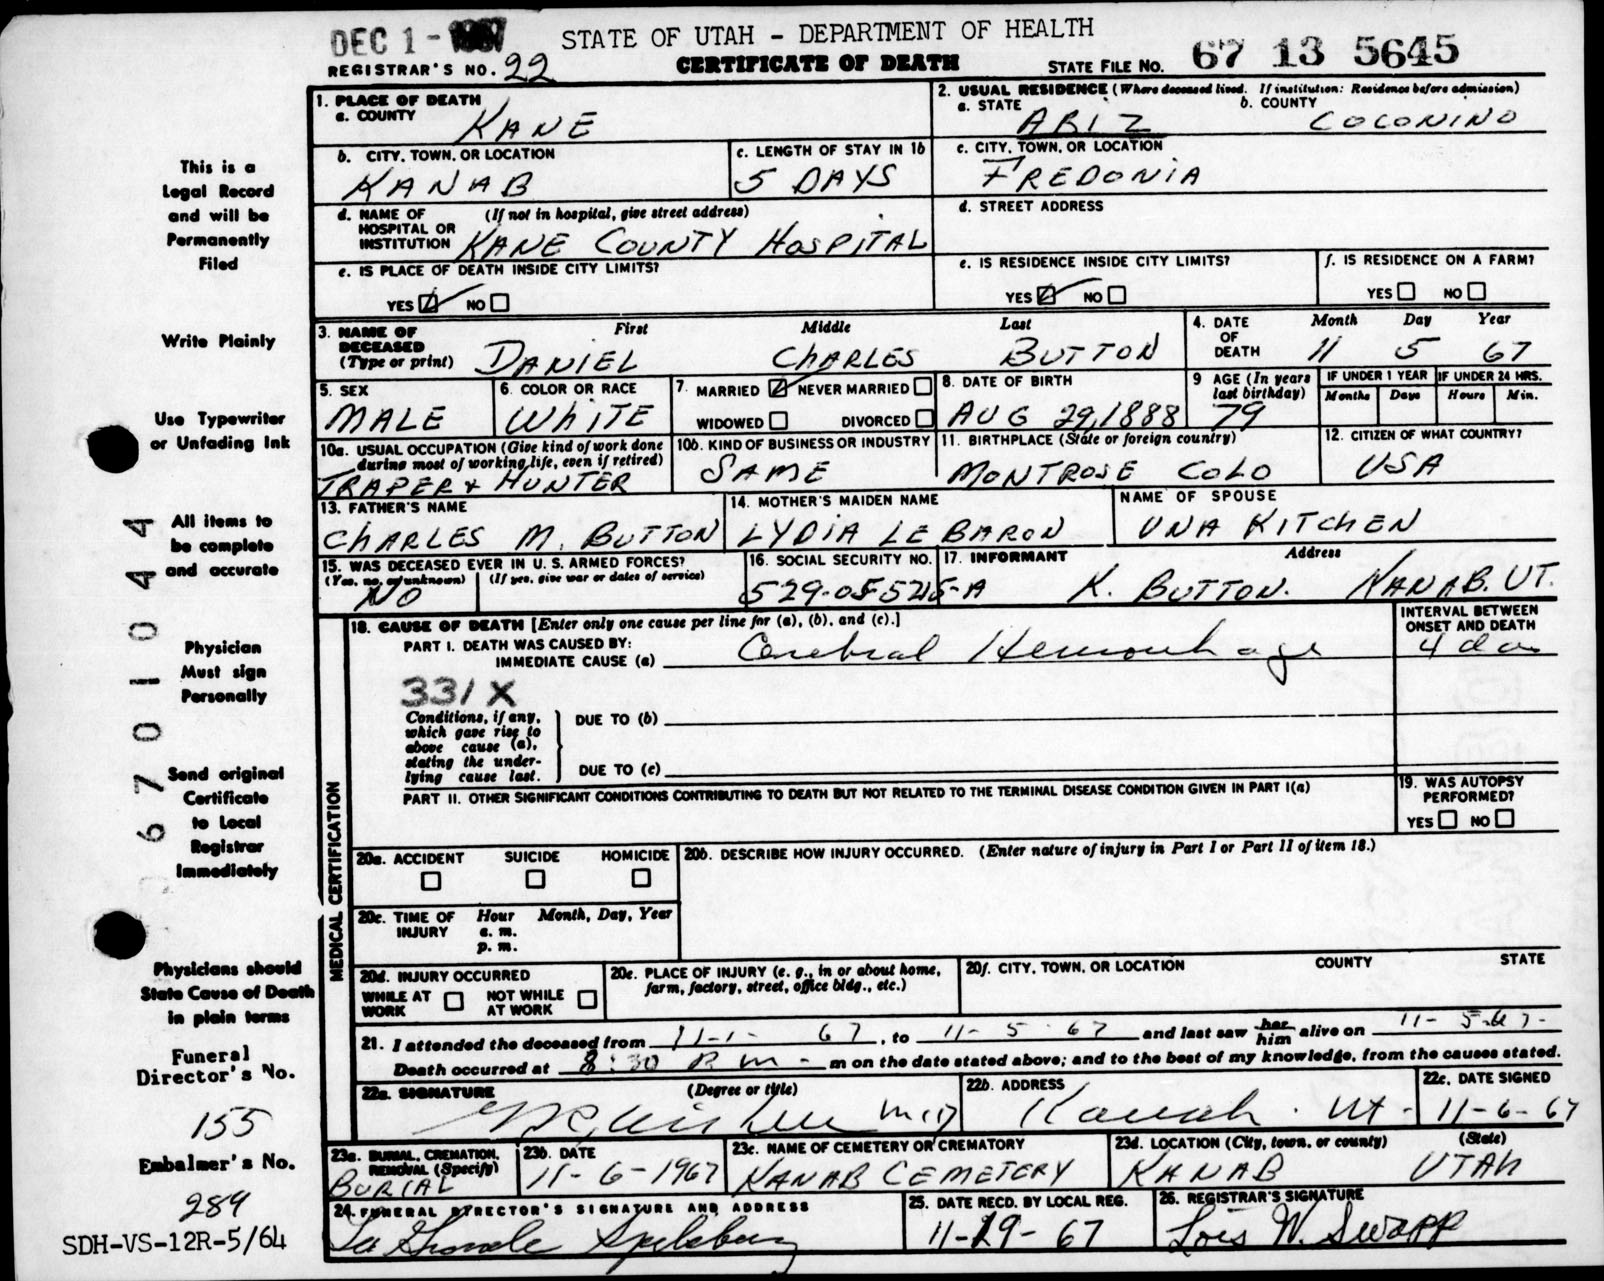 DEC 1 - 1967
STATE OF UTAH - DEPARTMENT OF HEALTH
REGISTRAR'S NO. 22
CERTIFICATE OF DEATH
STATE FILE NO. 67 13 5645
1. PLACE OF DEATH
a. COUNTY
KANE
2. USUAL RESIDENCE (Where deceased lived. If institution: Residence before admission)
a. STATE
ARIZ
b. COUNTY
COCONINO
b. CITY, TOWN, OR LOCATION
KANAB
c. LENGTH OF STAY IN 1b
5 DAYS
c. CITY, TOWN, OR LOCATION
FREDONIA
d. NAME OF HOSPITAL OR INSTITUTION
(If not in hospital, give street address)
KANE COUNTY HOSPITAL
d. STREET ADDRESS
e. IS PLACE OF DEATH INSIDE CITY LIMITS?
YES NO
e. IS RESIDENCE INSIDE CITY LIMITS?
YES NO
f. IS RESIDENCE ON A FARM?
YES NO
3. NAME OF DECEASED
(Type or print)
First Middle Last
DANIEL CHARLES BUTTON
4. DATE OF DEATH
Month Day Year
11 5 67
5. SEX
MALE
6. COLOR OR RACE
WHITE
7. MARRIED NEVER MARRIED
WIDOWED DIVORCED
8. DATE OF BIRTH
AUG 29, 1888
9 AGE (In years last birthday)
79
IF UNDER 1 YEAR
Months Days
IF UNDER 24 HRS.
Hours Min.
10a. USUAL OCCUPATION (Give kind of work done during most of working life, even if retired)
TRAPER & HUNTER
10b. KIND OF BUSINESS OR INDUSTRY
SAME
11. BIRTHPLACE (State or foreign country)
MONTROSE COLO
12. CITIZEN OF WHAT COUNTRY?
USA
13. FATHER'S NAME
CHARLES M. BUTTON
14. MOTHER'S MAIDEN NAME
LYDIA LEBARON
NAME OF SPOUSE
UNA KITCHEN
15. WAS DECEASED EVER IN U.S. ARMED FORCES?
(Yes, no, or unknown) (If yes, give war or dates of service)
NO
16. SOCIAL SECURITY NO.
17. INFORMANT Address
K. BUTTON. KANAB. UT.
MEDICAL CERTIFICATION
18. CAUSE OF DEATH [Enter only one cause per line for (a), (b), and (c).]
INTERVAL BETWEEN ONSET AND DEATH
PART I. DEATH WAS CAUSED BY:
IMMEDIATE CAUSE (a) Cerebral Hemorrhage 4 da
331 X
Conditions, if any, which gave rise to above cause (a), stating the underlying cause last.
DUE TO (b)
DUE TO (c)
PART II. OTHER SIGNIFICANT CONDITIONS CONTRIBUTING TO DEATH BUT NOT RELATED TO THE TERMINAL DISEASE CONDITION GIVEN IN PART I(a)
19. WAS AUTOPSY PERFORMED?
YES NO
20a. ACCIDENT SUICIDE HOMICIDE
20b. DESCRIBE HOW INJURY OCCURRED. (Enter nature of injury in Part I or Part II of item 18.)
20c. TIME OF INJURY
Hour Month, Day, Year
a. m.
p. m.
20d. INJURY OCCURRED
WHILE AT WORK
NOT WHILE AT WORK
20e. PLACE OF INJURY (e. g., in or about home, farm, factory, street, office bldg., etc.)
20f. CITY, TOWN, OR LOCATION COUNTY STATE
21. I attended the deceased from 11-1- 67, to 11-5-67 and last saw her him alive on 11-5-67-
Death occurred at 8:30 P m - m on the date stated above; and to the best of my knowledge, from the causes stated.
22a. SIGNATURE (Degree or title)
MD
22b. ADDRESS
Kanab. Ut-
22c. DATE SIGNED
11-6-67
23a. BURIAL, CREMATION, REMOVAL (Specify)
BURIAL
23b. DATE
11-6-1967
23c. NAME OF CEMETERY OR CREMATORY
KANAB CEMETERY
23d. LOCATION (City, town, or county) (State)
KANAB UTAH
24. FUNERAL DIRECTOR'S SIGNATURE AND ADDRESS
25. DATE RECD. BY LOCAL REG.
11-29-67
26. REGISTRAR'S SIGNATURE
Lois W. Swapp
This is a
Legal Record
and will be
Permanently
Filed
Write Plainly
Use Typewriter
or Unfading Ink
All items to
be complete
and accurate
Physician
Must sign
Personally
Send original
Certificate
to Local
Registrar
Immediately
6701044
Physicians should
State Cause of Death
in plain terms
Funeral
Director's No.
155
Embalmer's No.
289
SDH-VS-12R-5/64